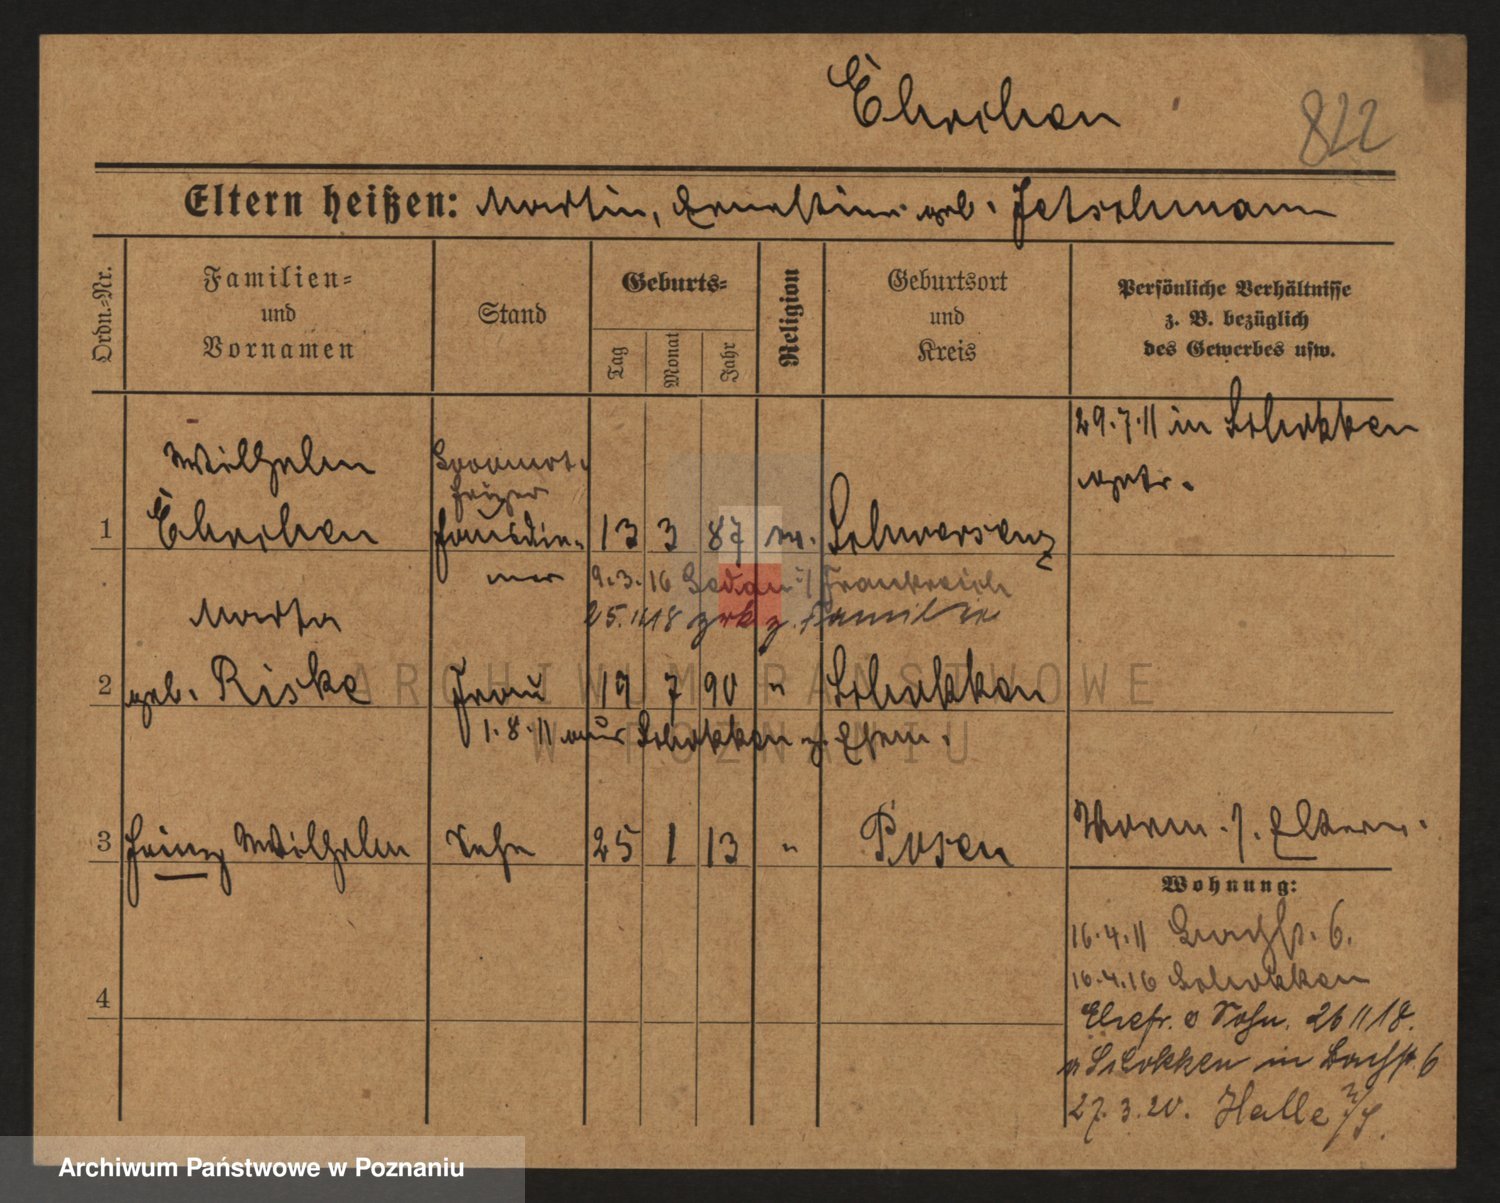 822
Eltern heißen: Martin, Ernestine geb. Jetschmann
Ordn.-Nr.
Familien- und Vornamen
Stand
Geburts-
Tag
Monat
Jahr
Religion
Geburtsort und Kreis
Persönliche Verhältnisse z. B. bezüglich des Gewerbes usw.
29.7.11 in Schokken
Wilhelm
1
13 3 87
Schwersenz
9.3.16 Sedan / Frankreich
25.11.18 zrk z. Familie
Martha
2 geb. Riske Frau 19 7 90 " Schokken
1.8.11 aus Schokken z. Ehem.
3 Heinz Wilhelm Sohn 25 1 13 " Posen
Eltern.
Wohnung:
16.4.11 Bachstr. 6.
16.4.16 Schokken
Ehefr. o Sohn. 26 11 18.
v Schokken in Bachstr. 6
4
27.3.20. Halle a/S.
ARCHIWUM PAŃSTWOWE
W POZNANIU
Archiwum Państwowe w Poznaniu